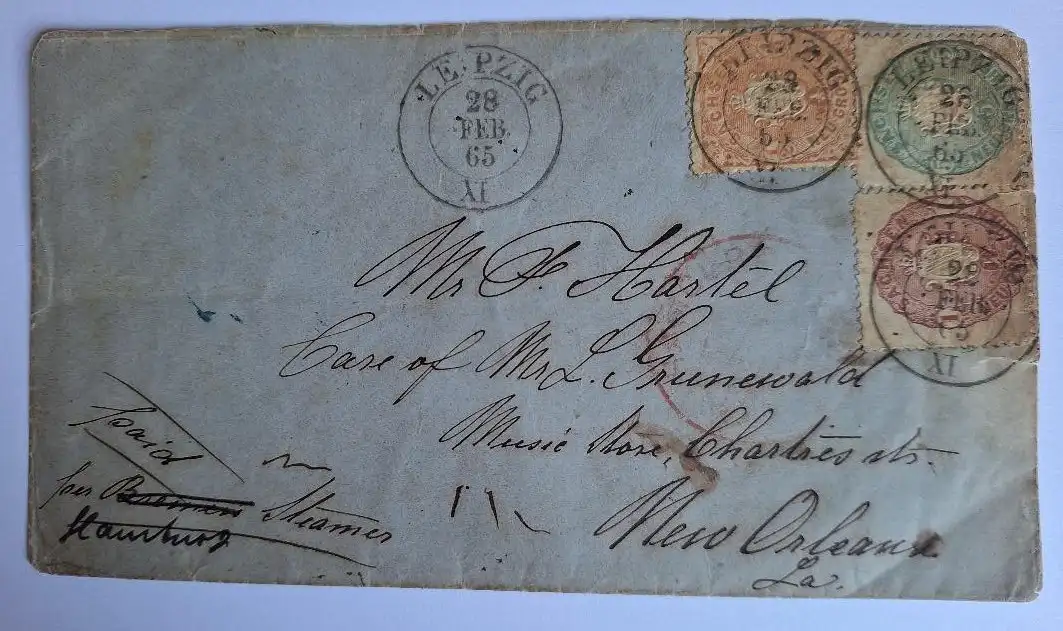 LEIPZIG
28
FEB.
65
XI
LEIPZIG
28
FEB.
65
XI
LEIPZIG
28
FEB.
65
28
FEB.
65
XI
NEU-GR
Mr F. Hartel
Care of Mr L. Grunewald
Music Store, Chartres str.
New Orleans
La.
Paid
per Bremen Steamer
Hamburg